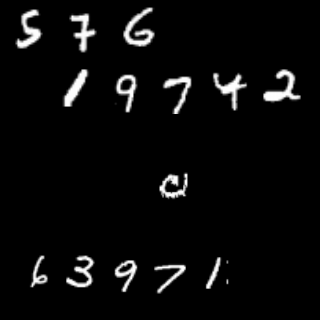 576
19742
63971